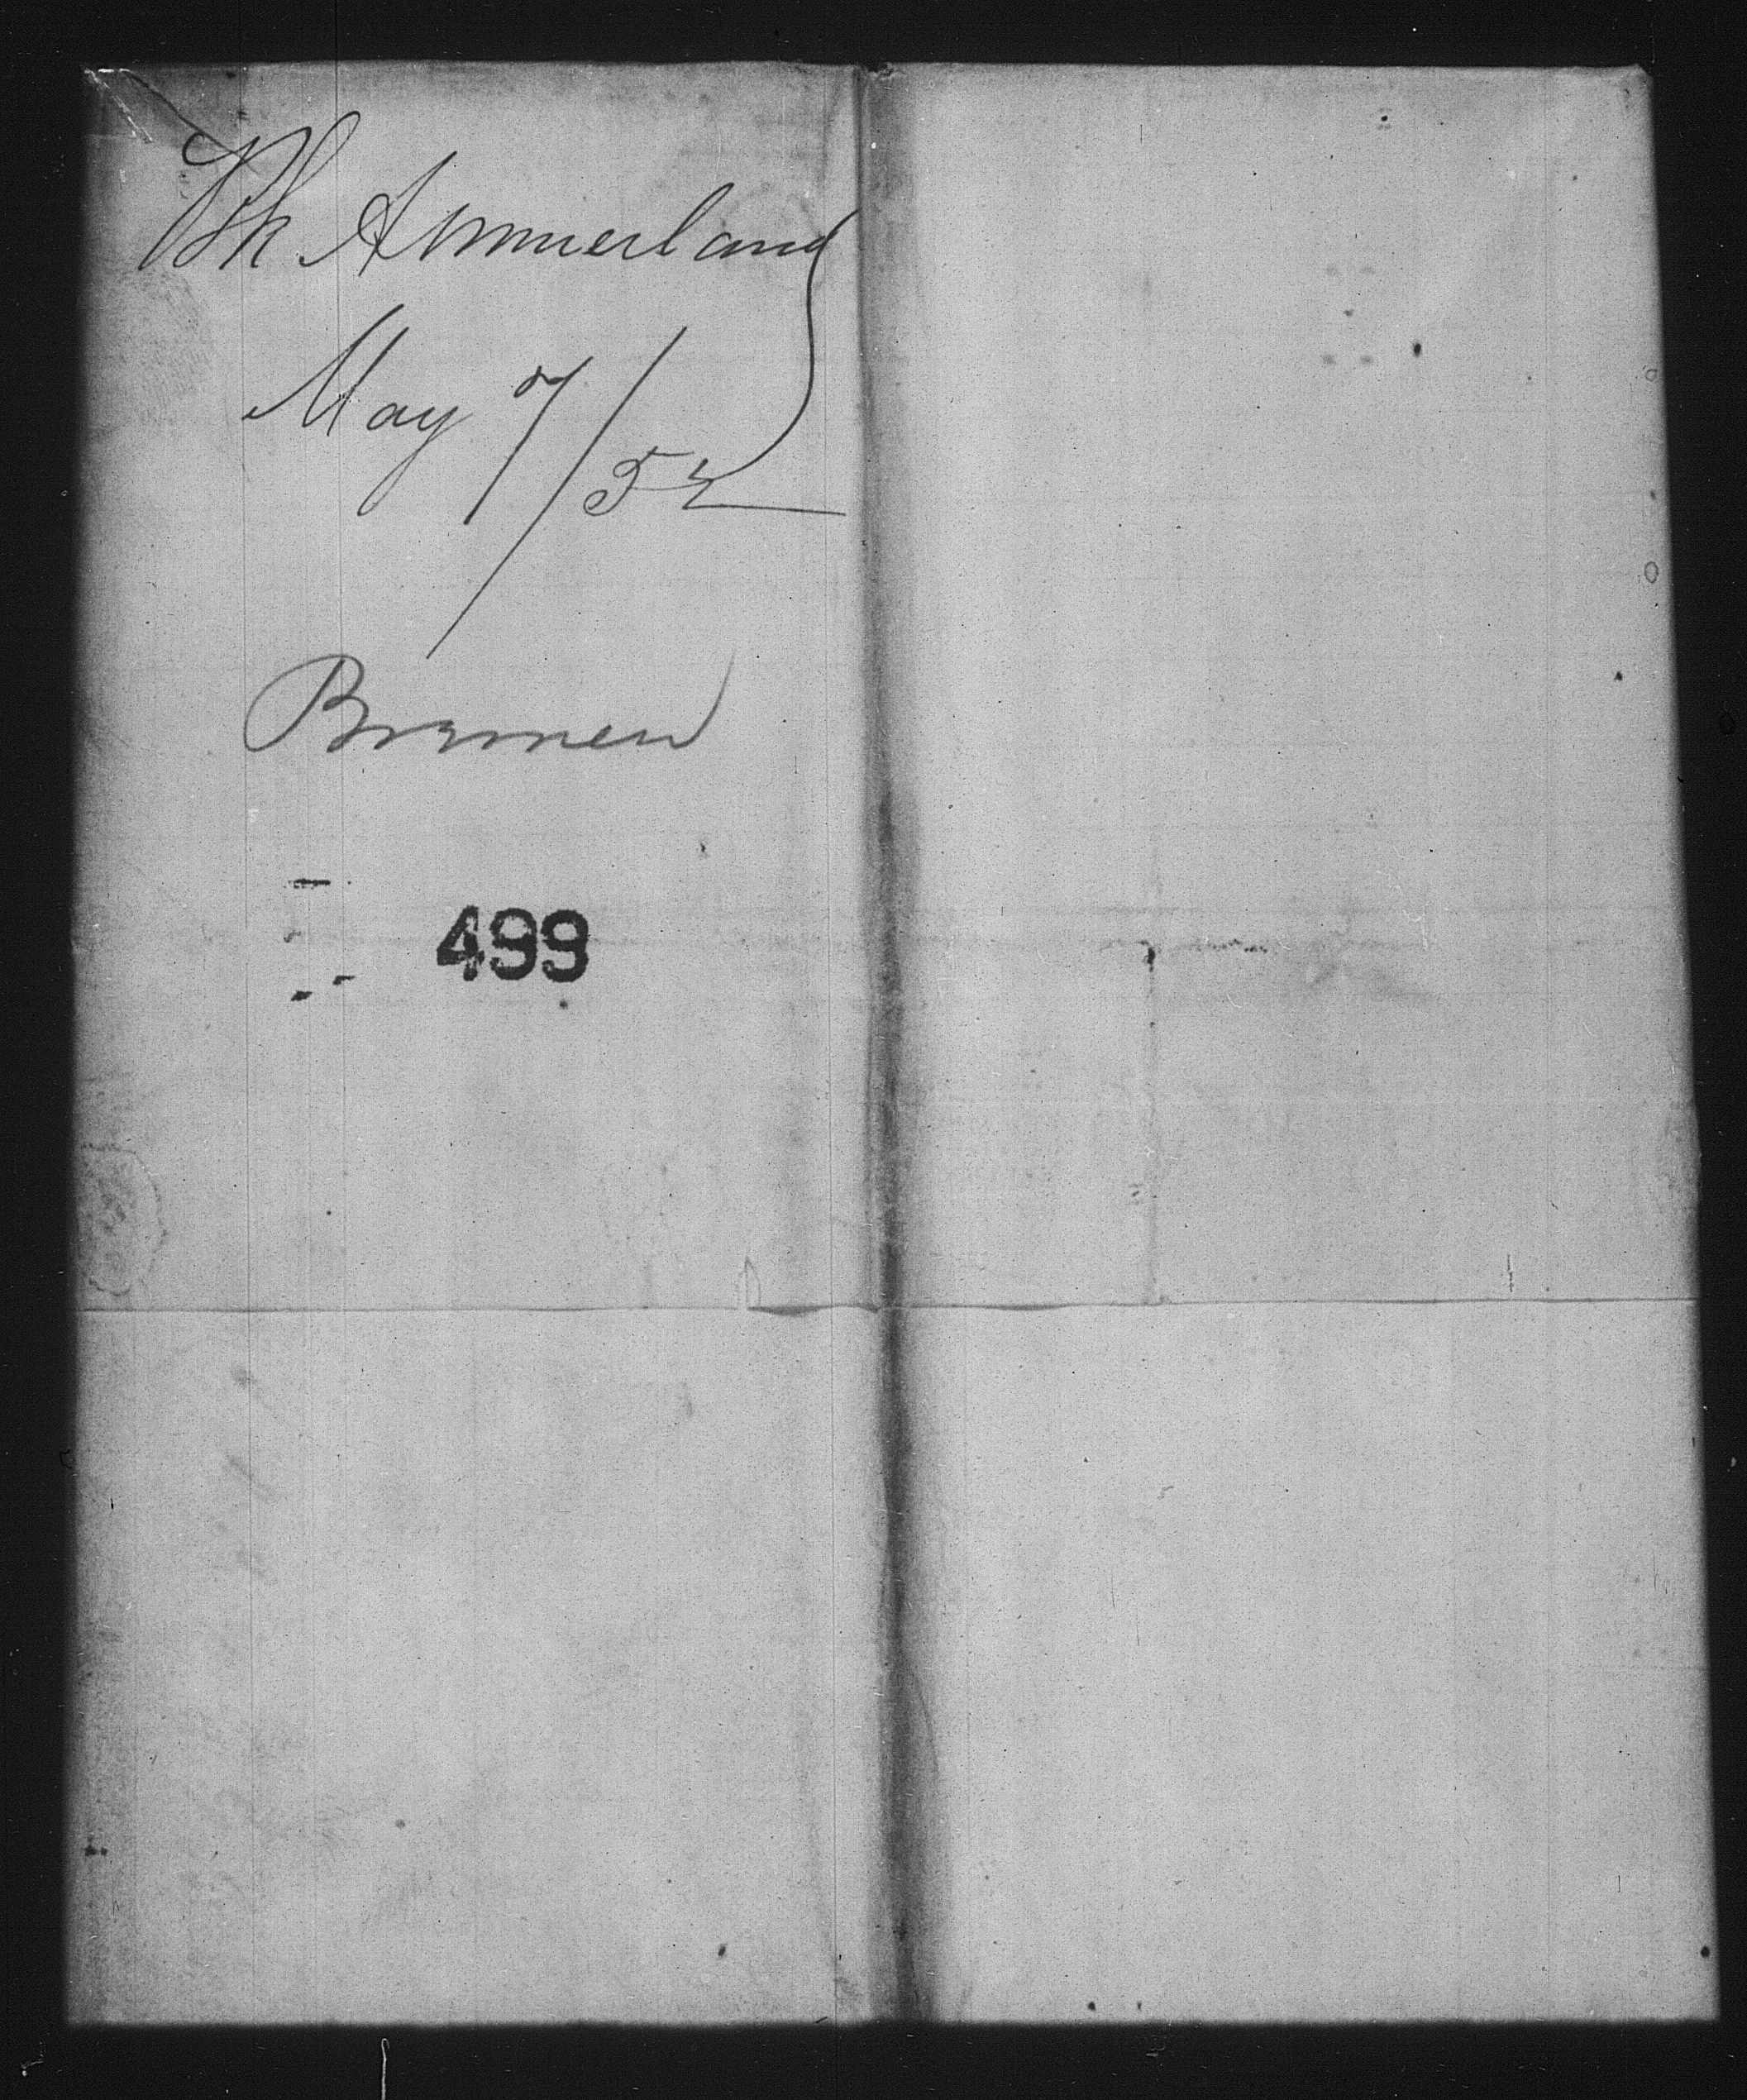 Bk Ammerland
May 7/52
Bremen
499